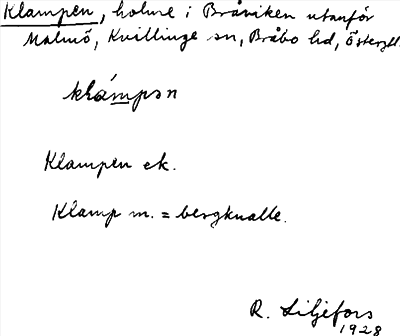 Klampen, holme i Bråviken utanför
Malmö, Kvillinge sn, Bråbo hd, Östergtl.
klámpən
Klampen ek.
Klamp m. = bergknalle.
R. Liljefors
1928